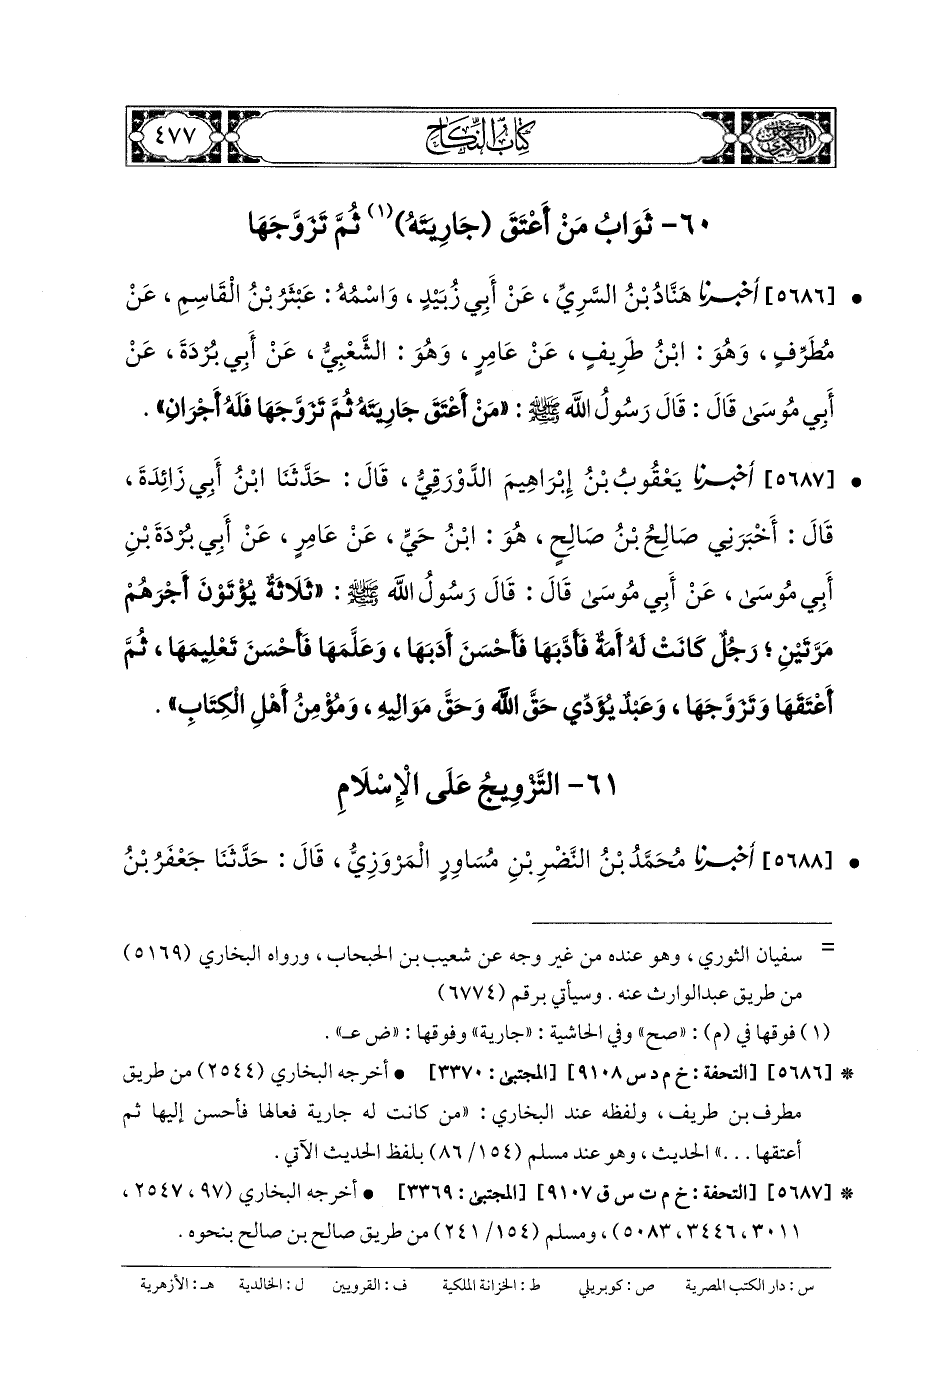 كتاب النكاح
٤٧٧
٦٠- ثَوَابُ مَنْ أَعْتَقَ (جَارِيَتَهُ)(١) ثُمَّ تَزَوَّجَهَا
• [٥٦٨٦] أَخْبَرَنَا هَنَّادُ بْنُ السَّرِيِّ، عَنْ أَبِي زُبَيْدٍ، وَاسْمُهُ: عَبْثَرُ بْنُ الْقَاسِمِ، عَنْ
مُطَرِّفٍ، وَهُوَ: ابْنُ طَرِيفٍ، عَنْ عَامِرٍ، وَهُوَ: الشَّعْبِيُّ، عَنْ أَبِي بُرْدَةَ، عَنْ
أَبِي مُوسَىٰ قَالَ: قَالَ رَسُولُ اللَّه ﷺ: «مَنْ أَعْتَقَ جَارِيَتَهُ ثُمَّ تَزَوَّجَهَا فَلَهُ أَجْرَانِ».
• [٥٦٨٧] أَخْبَرَنَا يَعْقُوبُ بْنُ إِبْرَاهِيمَ الدَّوْرَقِيُّ، قَالَ: حَدَّثَنَا ابْنُ أَبِي زَائِدَةَ،
قَالَ: أَخْبَرَنِي صَالِحُ بْنُ صَالِحٍ، هُوَ: ابْنُ حَيٍّ، عَنْ عَامِرٍ، عَنْ أَبِي بُرْدَةَ بْنِ
أَبِي مُوسَىٰ، عَنْ أَبِي مُوسَىٰ قَالَ: قَالَ رَسُولُ اللَّه ﷺ: «ثَلَاثَةٌ يُؤْتَوْنَ أَجْرَهُمْ
مَرَّتَيْنِ؛ رَجُلٌ كَانَتْ لَهُ أَمَةٌ فَأَدَّبَهَا فَأَحْسَنَ أَدَبَهَا، وَعَلَّمَهَا فَأَحْسَنَ تَعْلِيمَهَا، ثُمَّ
أَعْتَقَهَا وَتَزَوَّجَهَا، وَعَبْدٌ يُؤَدِّي حَقَّ اللَّه وَحَقَّ مَوَالِيهِ، وَمُؤْمِنُ أَهْلِ الْكِتَابِ».
٦١- التَّزْوِيجُ عَلَى الْإِسْلَامِ
• [٥٦٨٨] أَخْبَرَنَا مُحَمَّدُ بْنُ النَّضْرِ بْنِ مُسَاوِرٍ الْمَرْوَزِيُّ، قَالَ: حَدَّثَنَا جَعْفَرُ بْنُ
= سفيان الثوري، وهو عنده من غير وجه عن شعيب بن الحبحاب، ورواه البخاري (٥١٦٩)
من طريق عبدالوارث عنه. وسيأتي برقم (٦٧٧٤)
(١) فوقها في (م): «صح» وفي الحاشية: «جارية» وفوقها: «ض عـ».
* [٥٦٨٦] [التحفة: خ م د س ٩١٠٨] [المجتبىٰ: ٣٣٧٠] • أخرجه البخاري (٢٥٤٤) من طريق
مطرف بن طريف، ولفظه عند البخاري: «من كانت له جارية فعالها فأحسن إليها ثم
أعتقها...» الحديث، وهو عند مسلم (١٥٤/ ٨٦) بلفظ الحديث الآتي.
* [٥٦٨٧] [التحفة: خ م ت س ق ٩١٠٧] [المجتبىٰ: ٣٣٦٩] • أخرجه البخاري (٩٧، ٢٥٤٧،
٣٠١١، ٣٤٤٦، ٥٠٨٣)، ومسلم (١٥٤/ ٢٤١) من طريق صالح بن صالح بنحوه.
س: دار الكتب المصرية ص: كوبريلي ط: الخزانة الملكية ف: القرويين ل: الخالدية هـ: الأزهرية